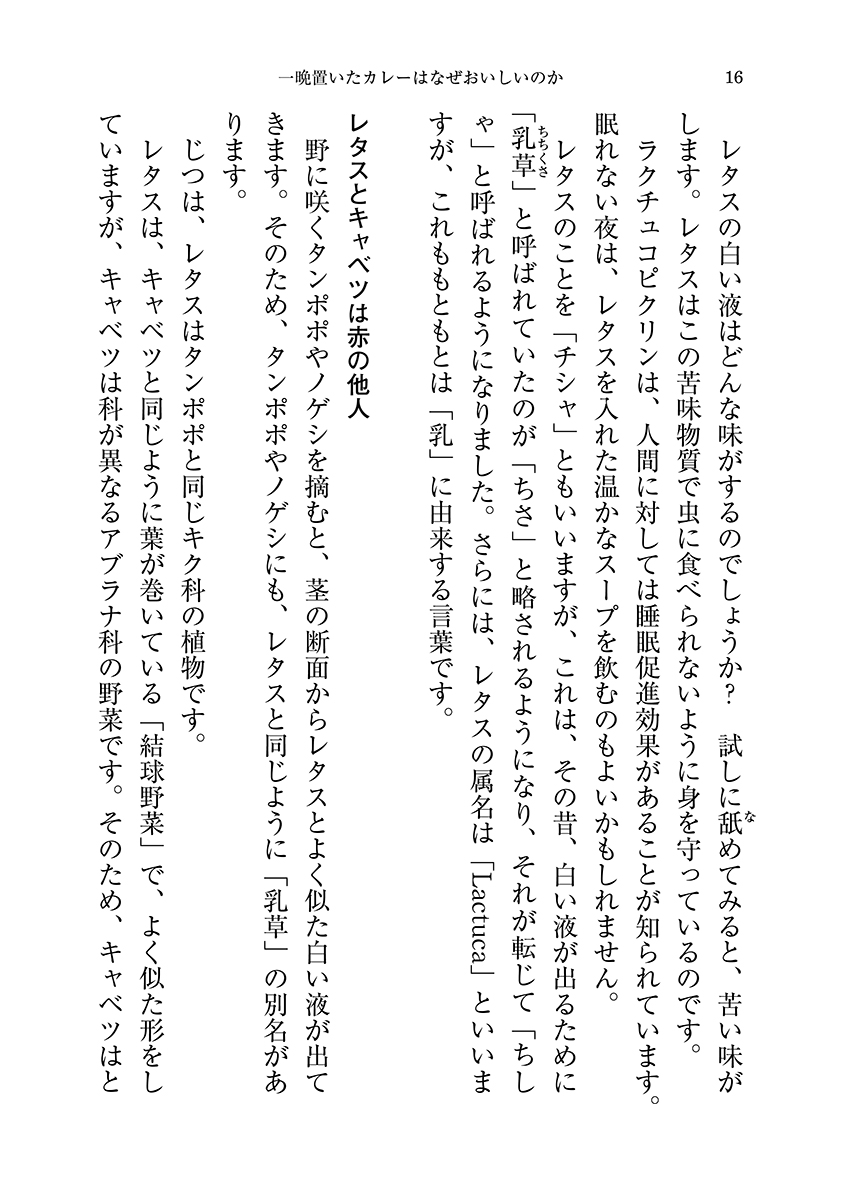 一晩置いたカレーはなぜおいしいのか
16
レタスの白い液はどんな味がするのでしょうか？　試しに舐めてみると、苦い味が
します。レタスはこの苦味物質で虫に食べられないように身を守っているのです。
ラクチュコピクリンは、人間に対しては睡眠促進効果があることが知られています。
眠れない夜は、レタスを入れた温かなスープを飲むのもよいかもしれません。
レタスのことを「チシャ」ともいいますが、これは、その昔、白い液が出るために
「乳草」と呼ばれていたのが「ちさ」と略されるようになり、それが転じて「ちし
ゃ」と呼ばれるようになりました。さらには、レタスの属名は「Lactuca」といいま
すが、これももともとは「乳」に由来する言葉です。
レタスとキャベツは赤の他人
野に咲くタンポポやノゲシを摘むと、茎の断面からレタスとよく似た白い液が出て
きます。そのため、タンポポやノゲシにも、レタスと同じように「乳草」の別名があ
ります。
じつは、レタスはタンポポと同じキク科の植物です。
レタスは、キャベツと同じように葉が巻いている「結球野菜」で、よく似た形をし
ていますが、キャベツは科が異なるアブラナ科の野菜です。そのため、キャベツはと
な
ちちくさ